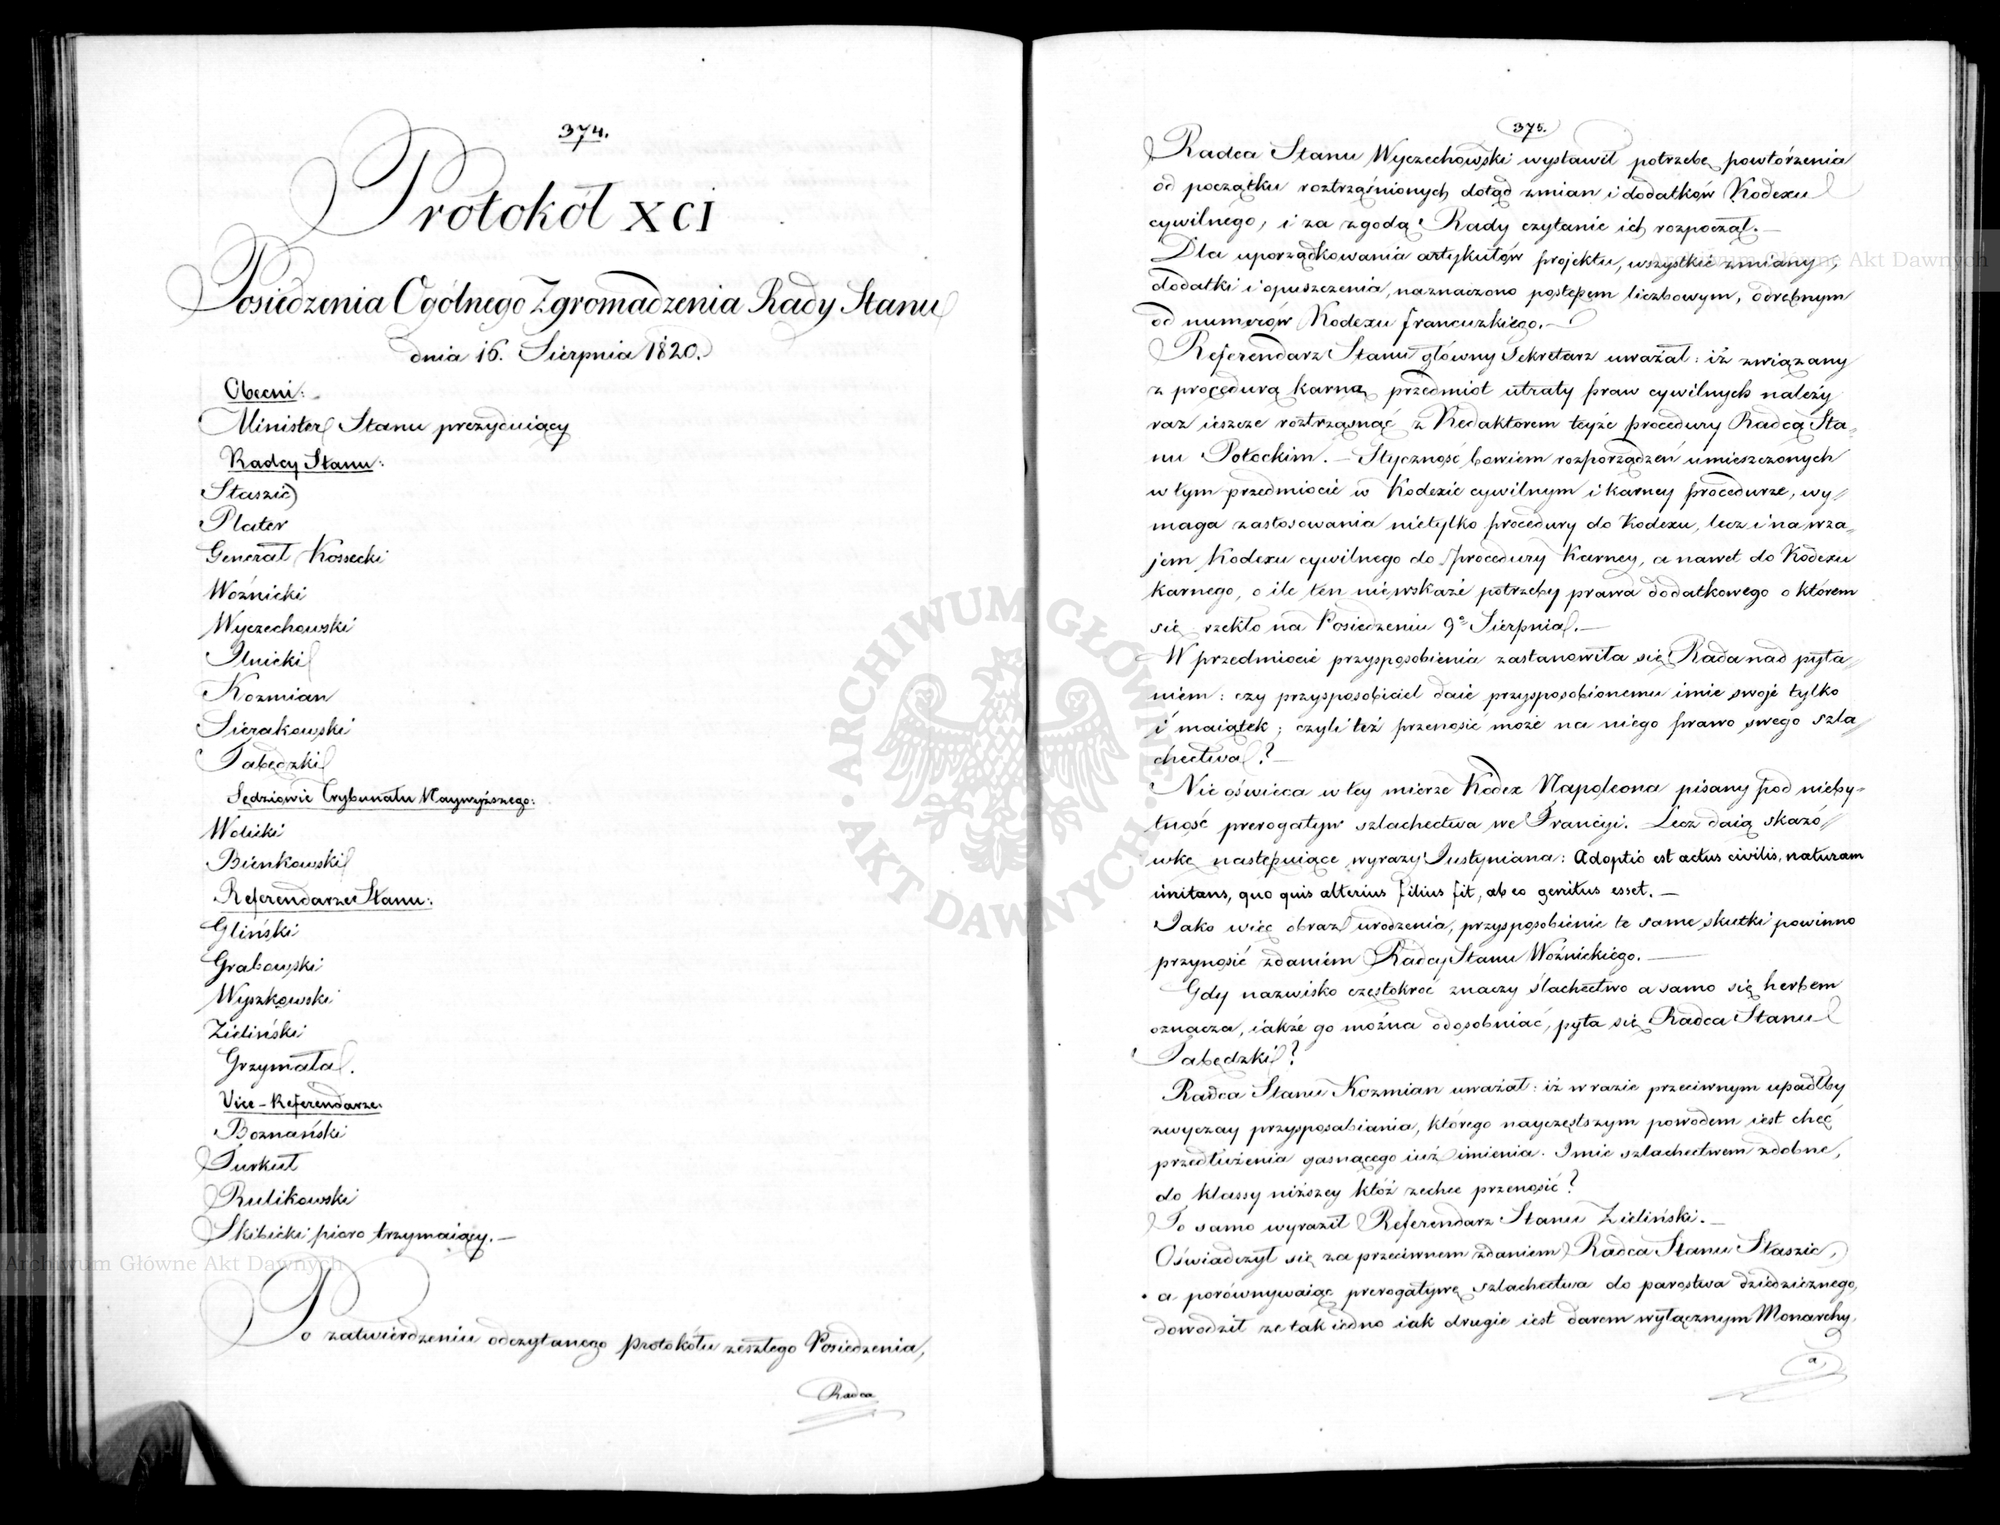 374.
Protokół XCI
Posiedzenia Ogólnego Zgromadzenia Rady Stanu
dnia 16. Sierpnia 1820.
Obecni:
Minister Stanu prezyduiący
Radcy Stanu:
Staszic
Plater
Generał Kossecki
Woźnicki
Wyczechowski
Ilnicki
Kozmian
Sierakowski
Łabędzki
Sędziowie Trybunału Naywyższego:
Wolicki
Bienkowski
Referendarze Stanu:
Gliński
Grabowski
Wyszkowski
Zieliński
Grzymała.
Vice-Referendarze:
Boznański
Turkuł
Rulikowski
Skibicki pioro trzymaiący.—
Po zatwierdzeniu odczytanego protokółu zeszłego Posiedzenia,
Radca
375.
Radca Stanu Wyczechowski wystawił potrzebę powtórzenia
od początku roztrząśnionych dotąd zmian i dodatków Kodexu
cywilnego, i za zgodą Rady czytanie ich rozpoczął.—
Dla uporządkowania artykułów projektu, wszystkie zmiany,
dodatki i opuszczenia, naznaczono postępem liczbowym, odrębnym
od numerów Kodexu francuzkiego.—
Referendarz Stanu główny Sekretarz uważał: iż związany
z procedurą karną przedmiot utraty praw cywilnych należy
raz ieszcze roztrząsnąć z Redaktorem teyże procedury Radcą Sta-
nu Potockim.— Styczność bowiem rozporządzeń umieszczonych
w tym przedmiocie w Kodexie cywilnym i karney procedurze, wy-
maga zastosowania nietylko procedury do Kodexu, lecz i nawza-
jem Kodexu cywilnego do procedury Karney, a nawet do Kodexu
karnego, o ile ten niewskaże potrzeby prawa dodatkowego o którem
się rzekło na Posiedzeniu 9º Sierpnia.—
W przedmiocie przysposobienia zastanowiła się Rada nad pyta-
niem: czy przysposobiciel daie przysposobionemu imie swoje tylko
i maiątek; czyli też przenosić może na niego prawo swego szla-
chectwa?—
Nie oświeca w tey mierze Kodex Napoleona pisany pod nieby-
tność prerogatyw szlachectwa we Francyi. Lecz daią skazó-
wkę następuiące wyrazy Justyniana: Adoptio est actus civilis, naturam
imitans, quo quis alterius filius fit, ab eo genitus esset.—
Jako więc obraz urodzenia, przysposobienie te same skutki powinno
przynosić zdaniem Radcy Stanu Woźnickiego.—
Gdy nazwisko częstokroć znaczy ślachectwo a samo się herbem
oznacza, iakże go można odosobniać, pyta się Radca Stanu
Łabędzki?
Radca Stanu Kozmian uważał: iż w razie przeciwnym upadłby
zwyczay przysposabiania, którego nayczęstszym powodem iest chęć
przedłużenia gasnącego iuż imienia. Imie szlachectwem zdobne,
do klassy niższey któż zechce przenosić?
To samo wyraził Referendarz Stanu Zieliński.—
Oświadczył się za przeciwnem zdaniem Radca Stanu Staszic,
a porównywaiąc prerogatywę szlachectwa do parostwa dziedzicznego,
dowodził że tak iedno iak drugie iest darem wyłącznym Monarchy,
a
ARCHIWUM GŁÓWNE AKT DAWNYCH
Archiwum Główne Akt Dawnych
Archiwum Główne Akt Dawnych